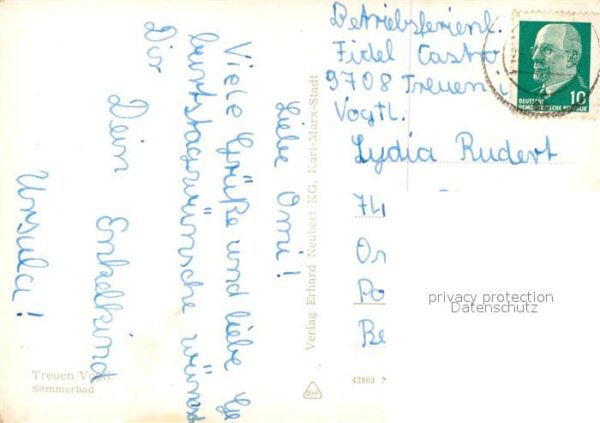 Liebe Omi!
Viele Grüße und liebe Ge
burtstagswünsche wünscht
Dir
Dein Enkelkind
Ursula!
Betriebsferienl.
Fidel Castro
9708 Treuen i
Vogtl.
Lydia Rudert
DEUTSCHE
DEMOKRATISCHE REPUBLIK
10
privacy protection
Datenschutz
Verlag Erhard Neubert KG, Karl-Marx-Stadt
Treuen Vogtl.
Sommerbad